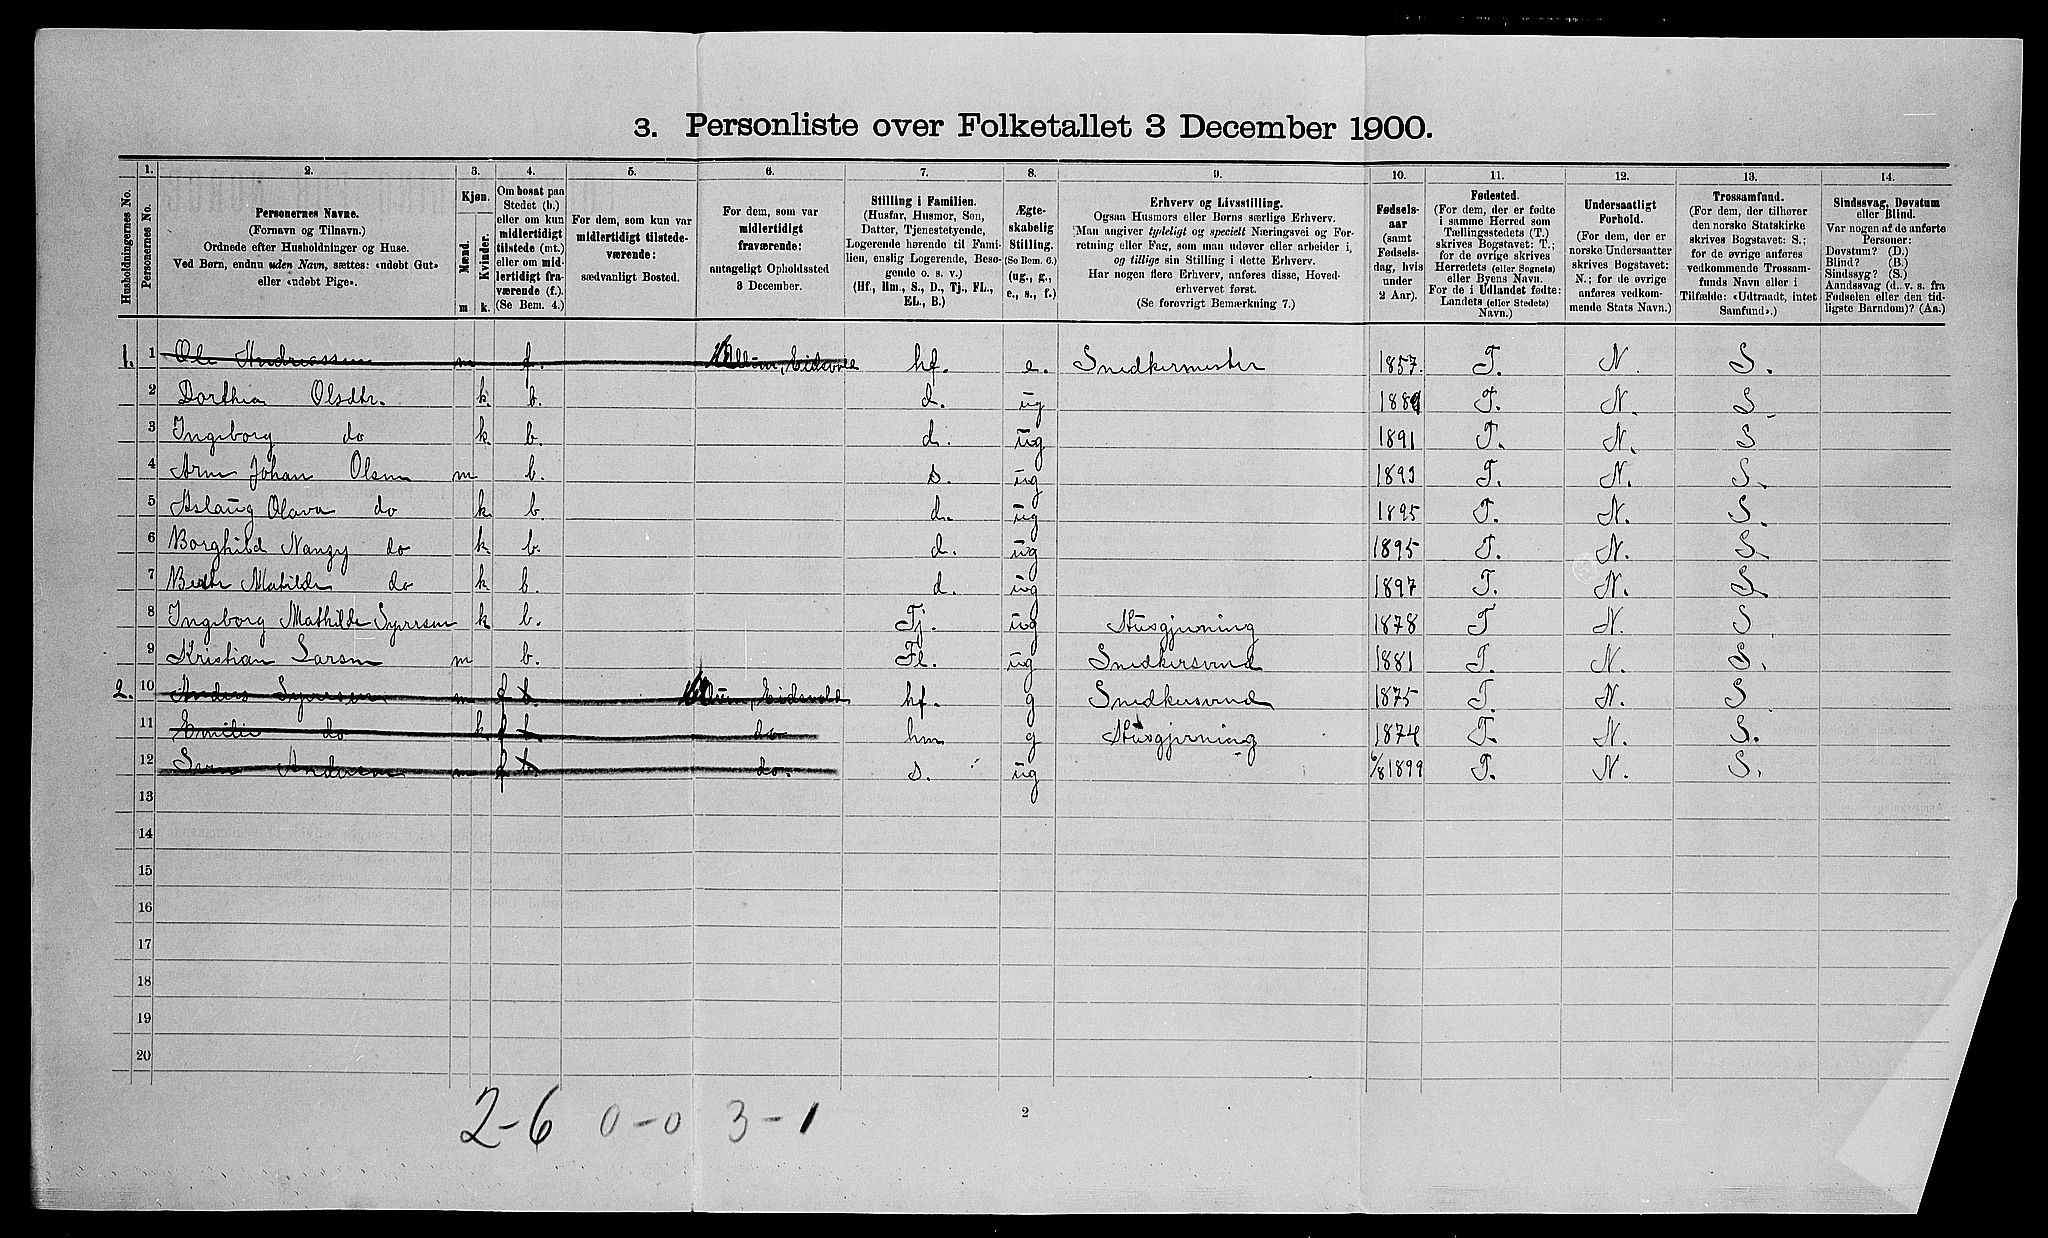 3. Personliste over Folketallet 3 December 1900.
Husholdningernes No.
1. Personernes No.
2. Personernes Navne. (Fornavn og Tilnavn.) Ordnede efter Husholdninger og Huse. Ved Børn, endnu uden Navn, sættes: «udøbt Gut» eller «udøbt Pige».
3. Kjøn. Mænd. m Kvinder. k.
4. Om bosat paa Stedet (b.) eller om kun midlertidigt tilstede (mt.) eller om midlertidigt fraværende (f.). (Se Bem. 4.)
5. For dem, som kun var midlertidigt tilstedeværende: sædvanligt Bosted.
6. For dem, som var midlertidigt fraværende: antageligt Opholdssted 3 December.
7. Stilling i Familien. (Husfar, Husmor, Søn, Datter, Tjenestetyende, Logerende hørende til Familien, enslig Logerende, Besøgende o. s. v.) (Hf., Hm., S., D., Tj., FL., EL., B.)
8. Ægteskabelig Stilling. (Se Bem. 6.) (ug., g., e., s., f.)
9. Erhverv og Livsstilling. Ogsaa Husmors eller Børns særlige Erhverv. Man angiver tydeligt og specielt Næringsvei og Forretning eller Fag, som man udøver eller arbeider i, og tillige sin Stilling i dette Erhverv. Har nogen flere Erhverv, anføres disse, Hovederhvervet først. (Se forøvrigt Bemærkning 7.)
10. Fødselsaar (samt Fødselsdag, hvis under 2 Aar).
11. Fødested. (For dem, der er fødte i samme Herred som Tællingsstedets (T.) skrives Bogstavet: T.; for de øvrige skrives Herredets (eller Sognets) eller Byens Navn. For de i Udlandet fødte: Landets (eller Stedets) Navn.)
12. Undersaatligt Forhold. (For dem, der er norske Undersaatter skrives Bogstavet: N.; for de øvrige anføres vedkommende Stats Navn.)
13. Trossamfund. (For dem, der tilhører den norske Statskirke skrives Bogstavet: S.; for de øvrige anføres vedkommende Trossamfunds Navn eller i Tilfælde: «Udtraadt, intet Samfund».)
14. Sindssvag, Døvstum eller Blind. Var nogen af de anførte Personer: Døvstum? (D.) Blind? (B.) Sindssyg? (S.) Aandssvag (d. v. s. fra Fødselen eller den tidligste Barndom)? (Aa.)
1. 1 Ole Andreassen m f. Eidsvold hf. e. Snedkermester 1857. T. N. S.
2 Dorthea Olsdtr. k. b. d. ug T. N. S
3 Ingeborg do k. b. d. ug 1891 T. N. S
4 Arne Johan Olsen m b. s. ug 1893 T. N. S.
5 Aslaug Olava do k b. d. ug 1895 T. N. S.
6 Borghild Nangy do k. b. d. ug 1895 T. N. S.
7 Mathilde do k b. d. ug 1897 T. N. S
8 Ingeborg Mathilde Syversen k b. Tj. ug Husgjerning 1878 T N. S
9 Kristian Larsen m b. Fl. ug Snedkersvend 1881 T. N. S.
2. 10 Anders Syversen m f b. Eidsvold hf. g Snedkersvend 1875 T. N. S
11 Emilie do k. f b do hm g Husgjerning 1874 T. N. S.
12 Andersen m f b do. s. ug 6/8 1899 T. N. S.
13
14
15
16
17
18
19
20
2-6 0-0 3-1
2